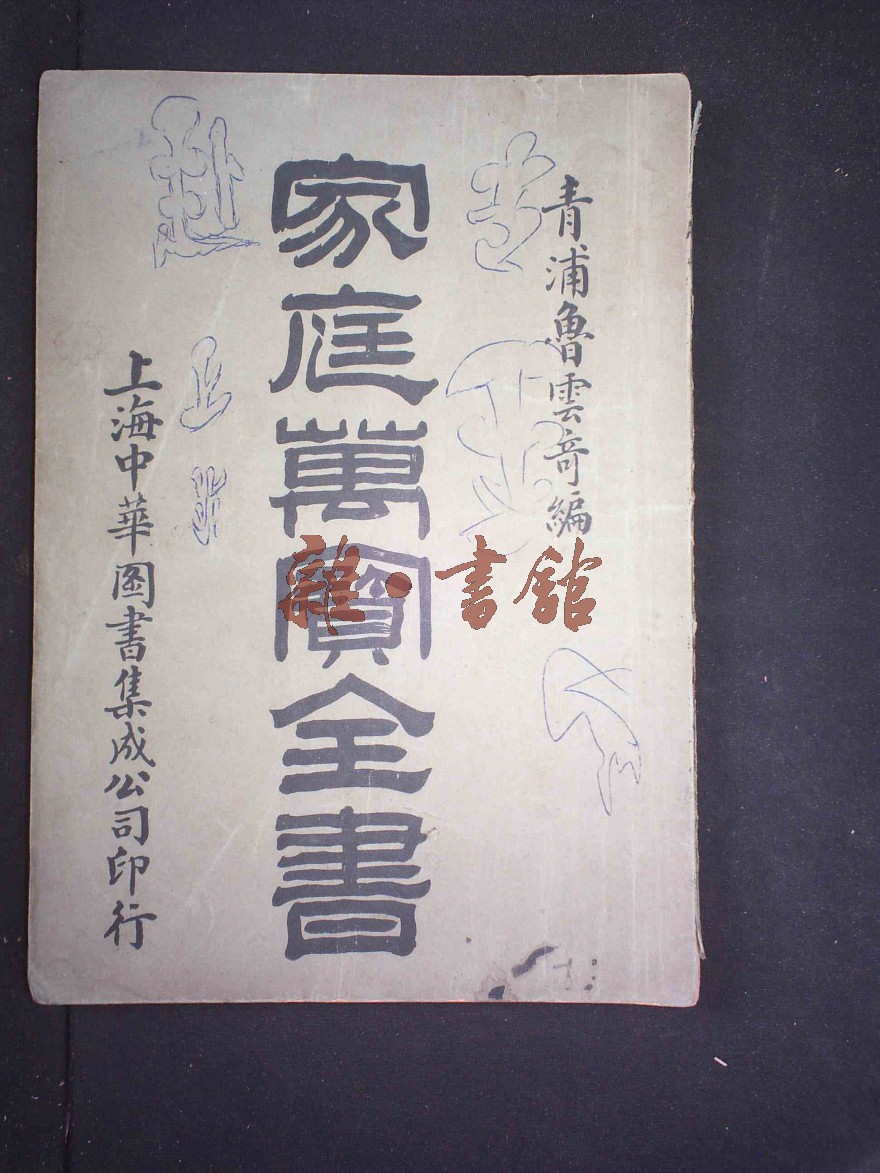 青浦魯雲奇編
家庭萬寳全書
上海中華圖書集成公司印行
雜·書館